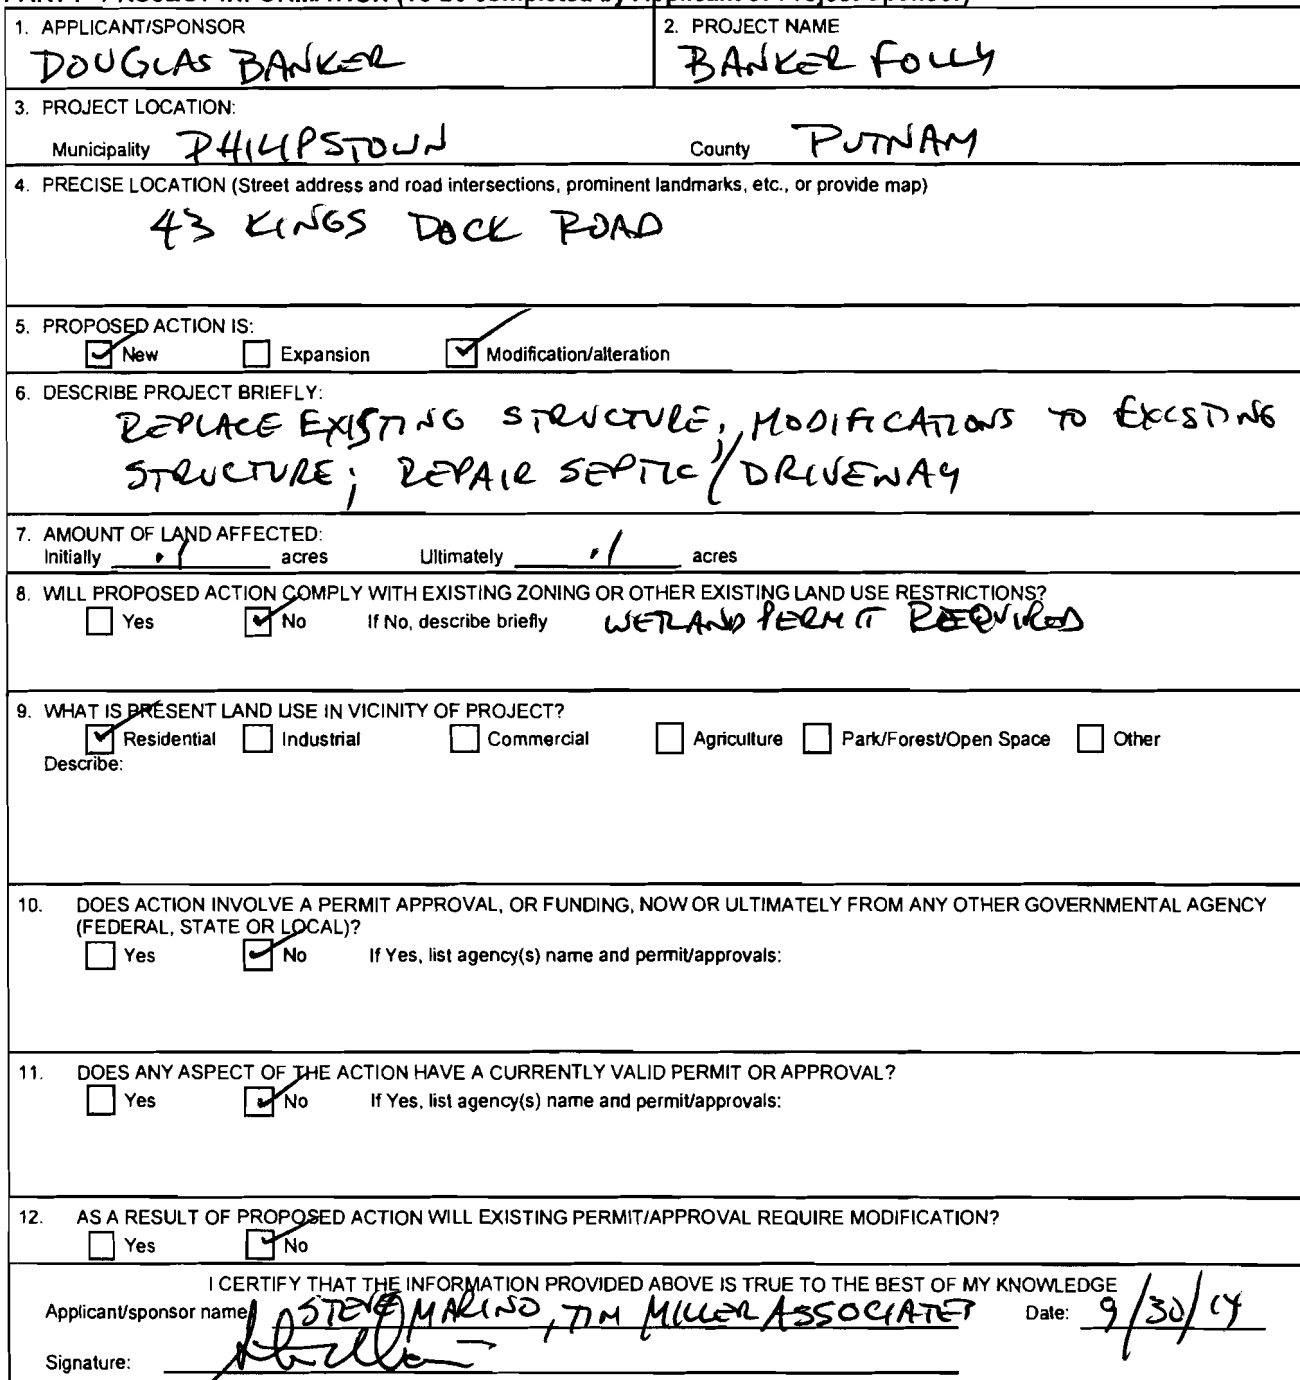 1. APPLICANT/SPONSOR
DOUGLAS BANKER
2. PROJECT NAME
BANKER FOLLY
3. PROJECT LOCATION:
Municipality PHILIPSTOWN County PUTNAM
4. PRECISE LOCATION (Street address and road intersections, prominent landmarks, etc., or provide map)
43 KINGS DOCK ROAD
5. PROPOSED ACTION IS:
New Expansion Modification/alteration
6. DESCRIBE PROJECT BRIEFLY:
REPLACE EXISTING STRUCTURE, MODIFICATIONS TO EXISTING
STRUCTURE; REPAIR SEPTIC/DRIVEWAY
7. AMOUNT OF LAND AFFECTED:
Initially .1 acres Ultimately .1 acres
8. WILL PROPOSED ACTION COMPLY WITH EXISTING ZONING OR OTHER EXISTING LAND USE RESTRICTIONS?
Yes No If No, describe briefly WETLAND PERMIT REQUIRED
9. WHAT IS PRESENT LAND USE IN VICINITY OF PROJECT?
Residential Industrial Commercial Agriculture Park/Forest/Open Space Other
Describe:
10. DOES ACTION INVOLVE A PERMIT APPROVAL, OR FUNDING, NOW OR ULTIMATELY FROM ANY OTHER GOVERNMENTAL AGENCY
(FEDERAL, STATE OR LOCAL)?
Yes No If Yes, list agency(s) name and permit/approvals:
11. DOES ANY ASPECT OF THE ACTION HAVE A CURRENTLY VALID PERMIT OR APPROVAL?
Yes No If Yes, list agency(s) name and permit/approvals:
12. AS A RESULT OF PROPOSED ACTION WILL EXISTING PERMIT/APPROVAL REQUIRE MODIFICATION?
Yes No
I CERTIFY THAT THE INFORMATION PROVIDED ABOVE IS TRUE TO THE BEST OF MY KNOWLEDGE
Applicant/sponsor name STEVE MARINO, TIM MILLER ASSOCIATES Date: 9/30/14
Signature: